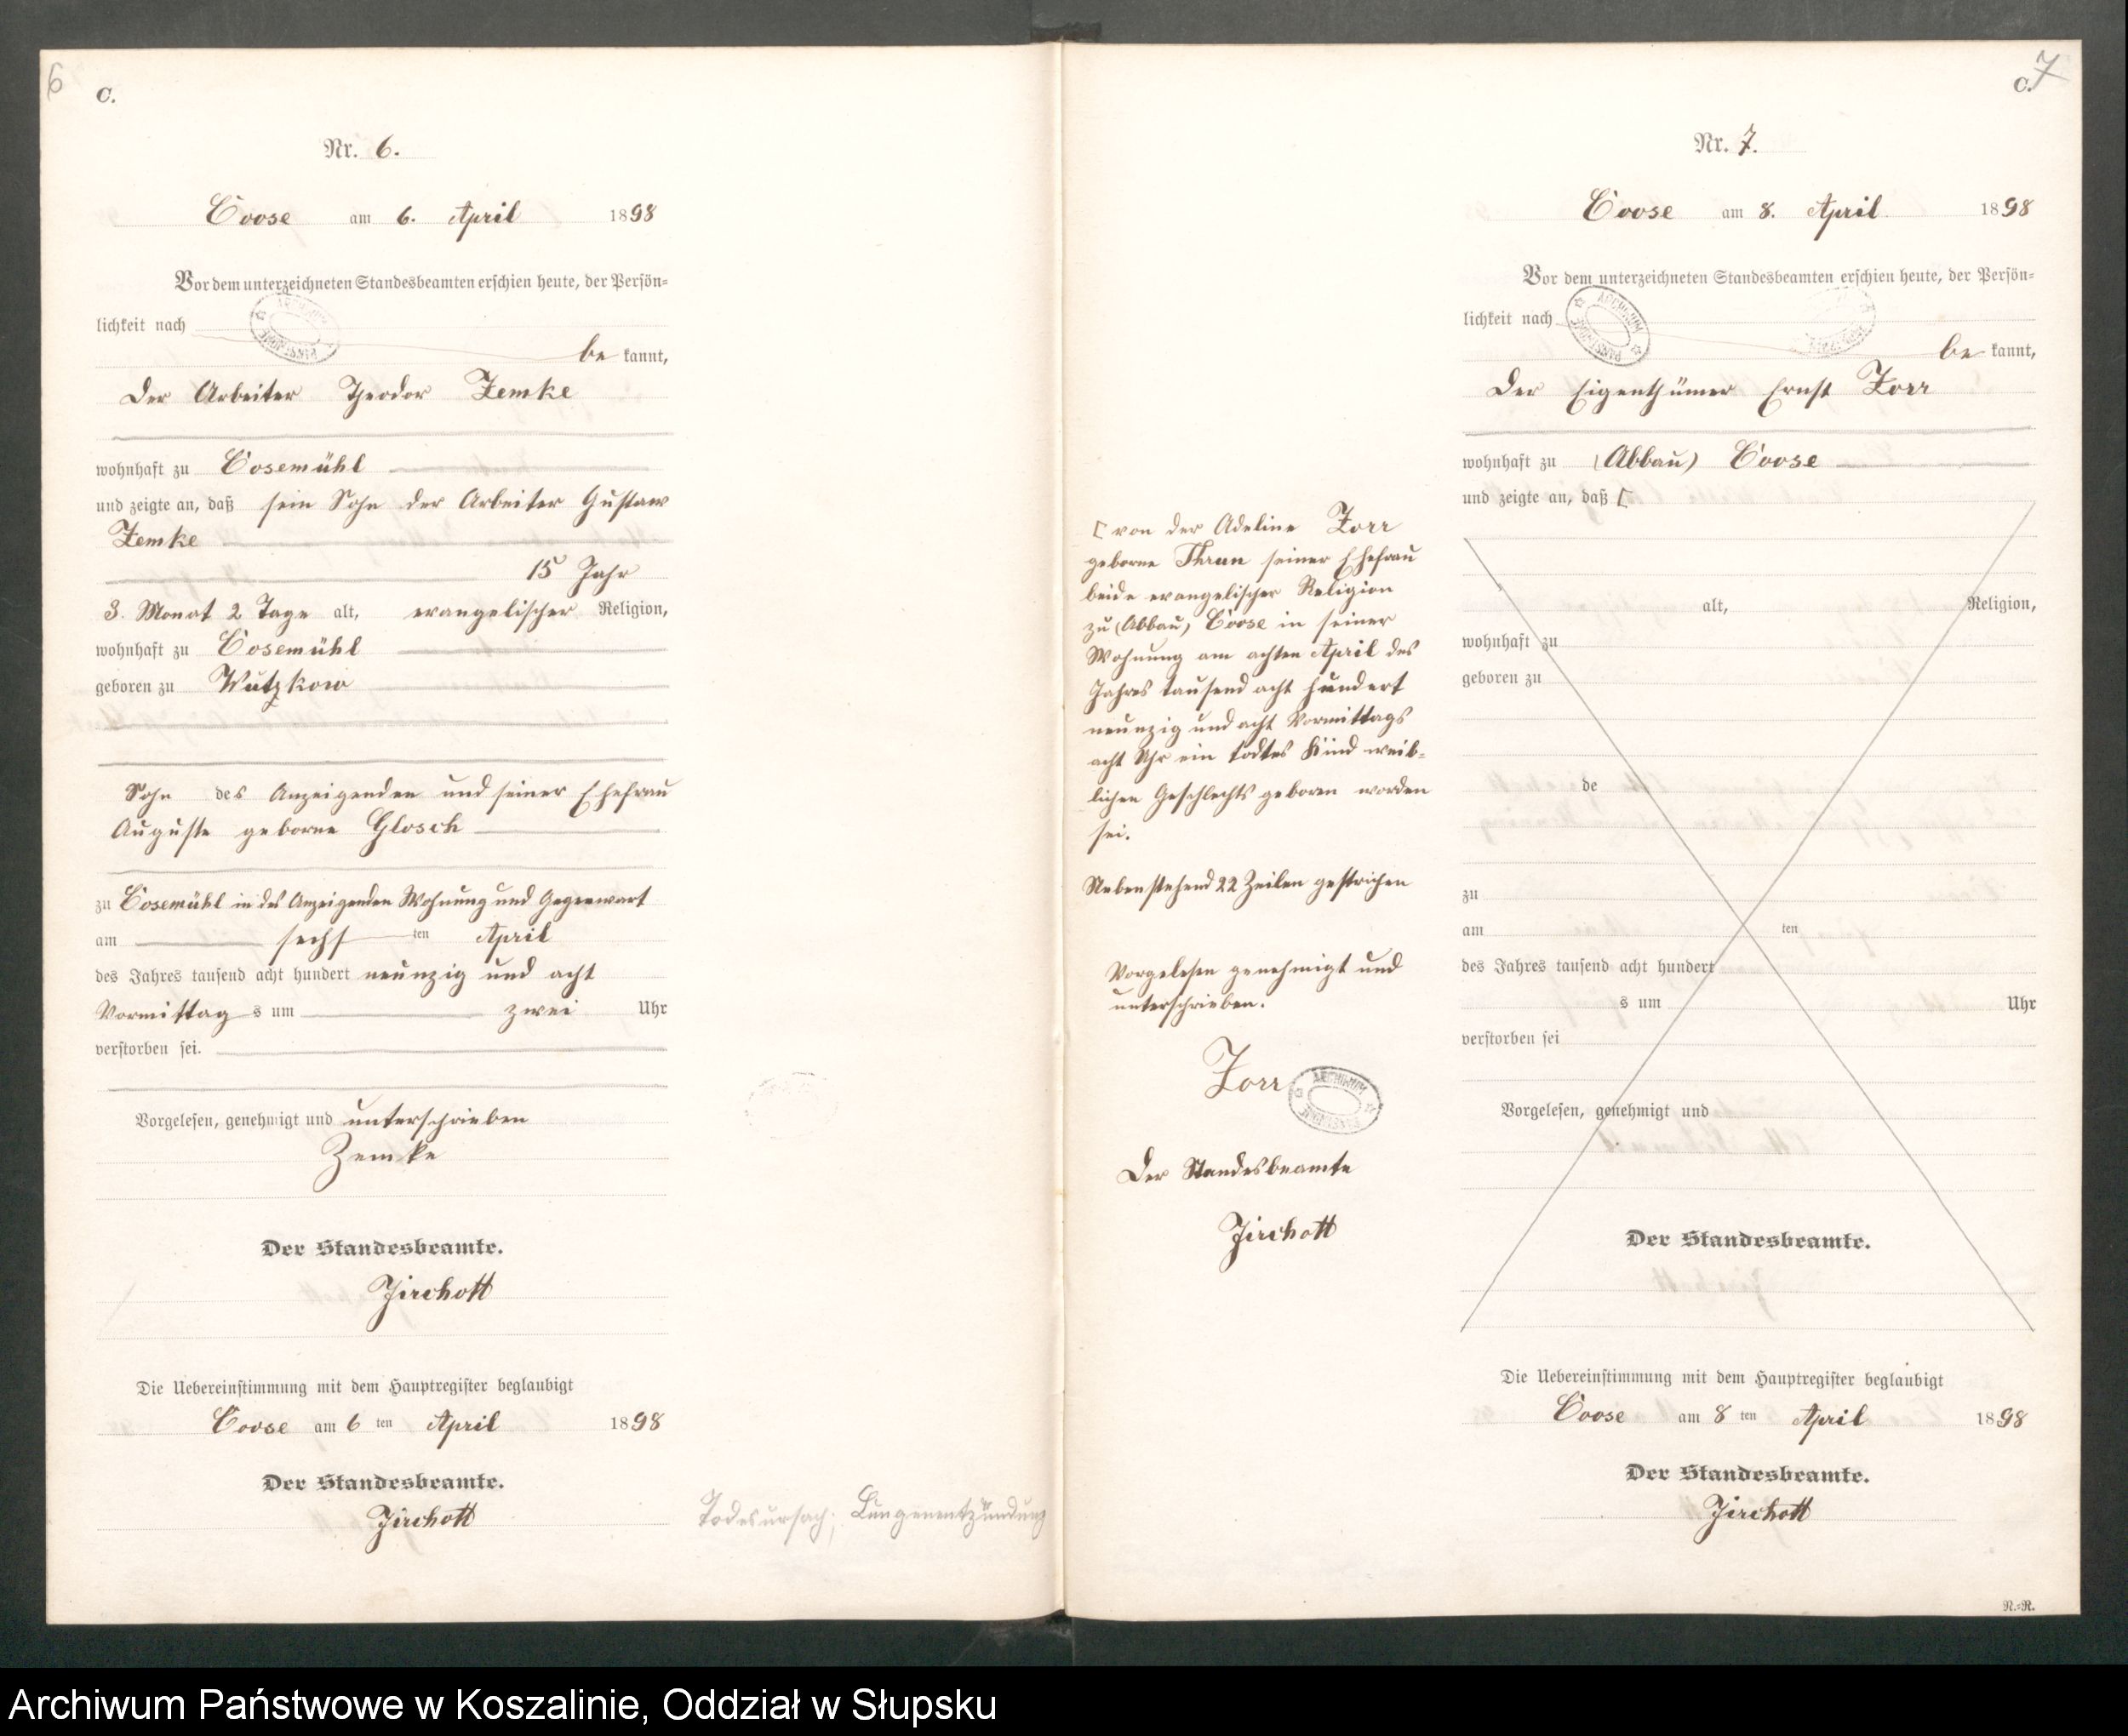 6
C.
Nr. 6.
Coose am 6. April 1898
Vor dem unterzeichneten Standesbeamten erschien heute, der Persön-
lichkeit nach
be kannt,
Der Arbeiter Theodor Zemke
wohnhaft zu Cosemühl
und zeigte an, daß sein Sohn der Arbeiter Gustaw
Zemke
15 Jahr
3. Monat 2 Tage alt, evangelischer Religion,
wohnhaft zu Cosemühl
geboren zu Wutzkow
Sohn des Anzeigenden und seiner Ehefrau
Auguste geborne Glosch
zu Cosemühl in des Anzeigenden Wohnung und Gegenwart
am sechs ten April
des Jahres tausend acht hundert neunzig und acht
Vormittag s um zwei Uhr
verstorben sei.
Vorgelesen, genehmigt und unterschrieben
Zemke
Der Standesbeamte.
Zirchott
Die Uebereinstimmung mit dem Hauptregister beglaubigt
Coose am 6 ten April 1898
Der Standesbeamte.
Zirchott
Todesursach; Lungenentzündung
7
C.
Nr. 7.
Coose am 8. April 1898
Vor dem unterzeichneten Standesbeamten erschien heute, der Persön-
lichkeit nach
be kannt,
Der Eigenthümer Ernst Zorr
wohnhaft zu (Abbau) Coose
und zeigte an, daß [
[ von der Adeline Zorr
geborne Thrun seiner Ehefrau
beide evangelischer Religion
zu (Abbau) Coose in seiner
Wohnung am achten April des
Jahres tausend acht hundert
neunzig und acht Vormittags
acht Uhr ein todtes Kind weib-
lichen Geschlechts geboren worden
sei.
Nebenstehend 22 Zeilen gestrichen
Vorgelesen genehmigt und
unterschrieben.
Zorr
Der Standesbeamte
Zirchott
alt, Religion,
wohnhaft zu
geboren zu
de
zu
am ten
des Jahres tausend acht hundert
s um Uhr
verstorben sei
Vorgelesen, genehmigt und
Der Standesbeamte.
Die Uebereinstimmung mit dem Hauptregister beglaubigt
Coose am 8 ten April 1898
Der Standesbeamte.
Zirchott
R.-R.
Archiwum Państwowe w Koszalinie, Oddział w Słupsku